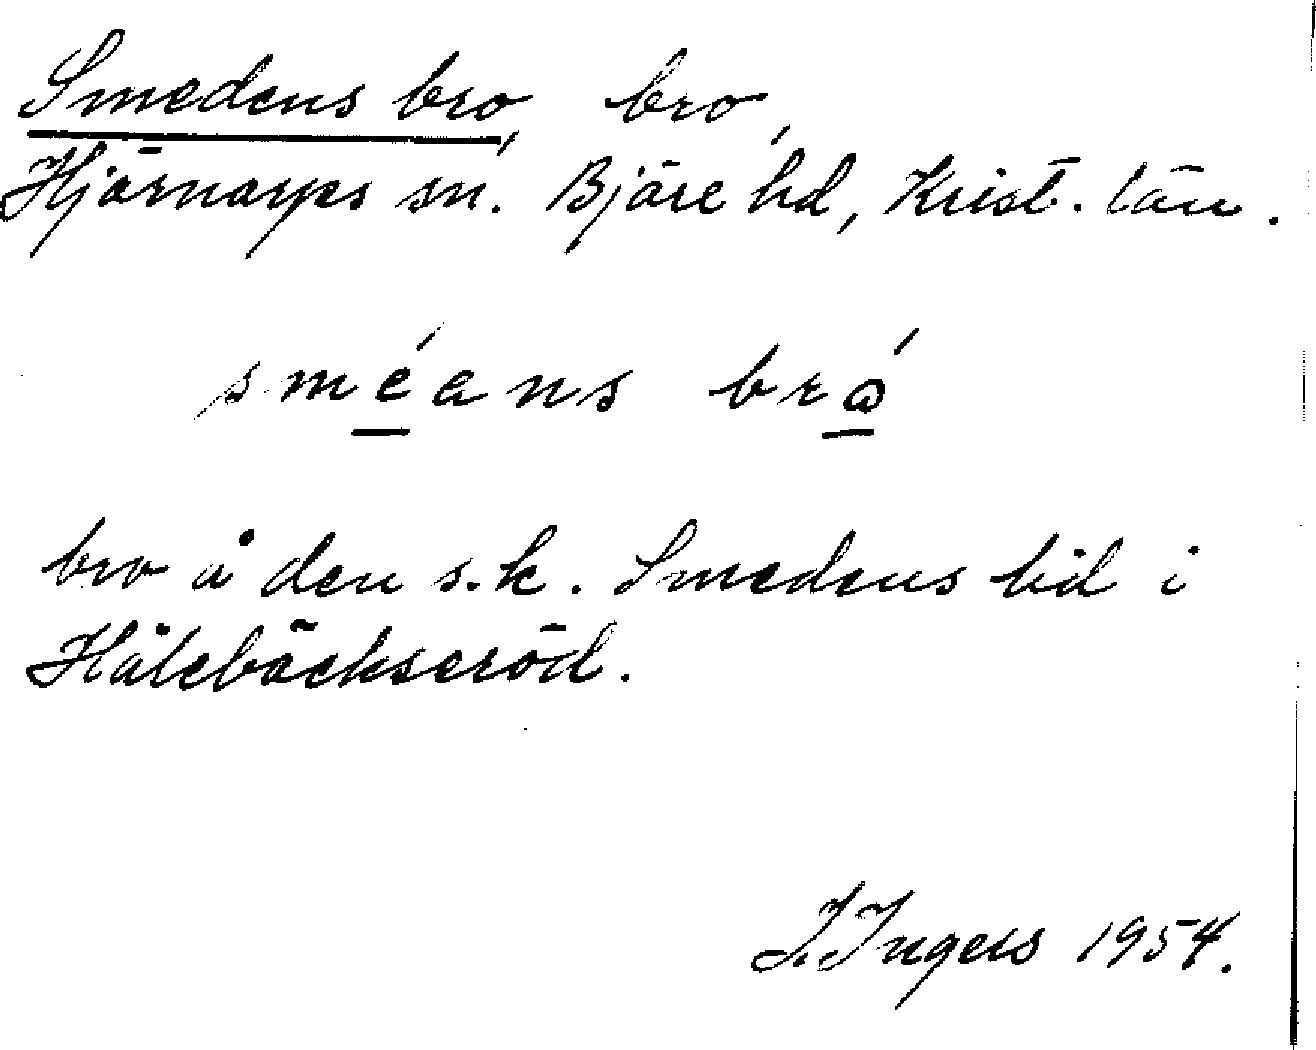 Smedens bro, bro,
Hjärnarps sn. Bjäre hd, Krist. län.
sméans bró
bro å den s.k. Smedens lid i
Hålebäckseröd.
I. Ingers 1954.